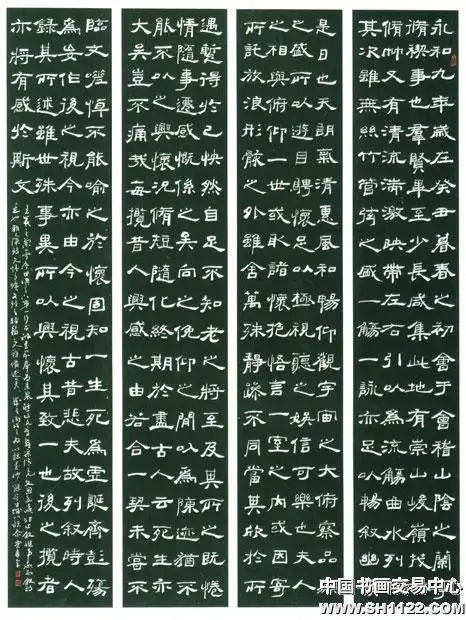 永和九年歲在癸丑暮春之初會于會稽山陰之蘭亭
脩禊事也羣賢畢至少長咸集此地有崇山峻嶺茂林
脩竹又有清流湍激映帶左右引以為流觴曲水列坐
其次雖無絲竹管弦之盛一觴一詠亦足以暢叙幽情
是日也天朗氣清惠風和暢仰觀宇宙之大俯察品類
之盛所以遊目騁懷足以極視聽之娛信可樂也夫人
之相與俯仰一世或取諸懷抱悟言一室之內或因寄
所託放浪形骸之外雖舍萬殊靜躁不同當其欣於所
遇暫得於己怏然自足不知老之將至及其所之既惓
情隨事遷感慨係之矣向之所欣俛仰之間以為陳迹猶不
能不以之興懷況脩短隨化終期於盡古人云死生亦
大矣豈不痛哉每攬昔人興感之由若合一契未嘗不
臨文嗟悼不能喻之於懷固知一生死為虛誕齊彭殤
為妄作後之視今亦由今之視古昔悲夫故列叙時人
録其所述雖世殊事異所以興懷其致一也後之攬者
亦將有感於斯文
中国书画交易中心
www.SH1122.com